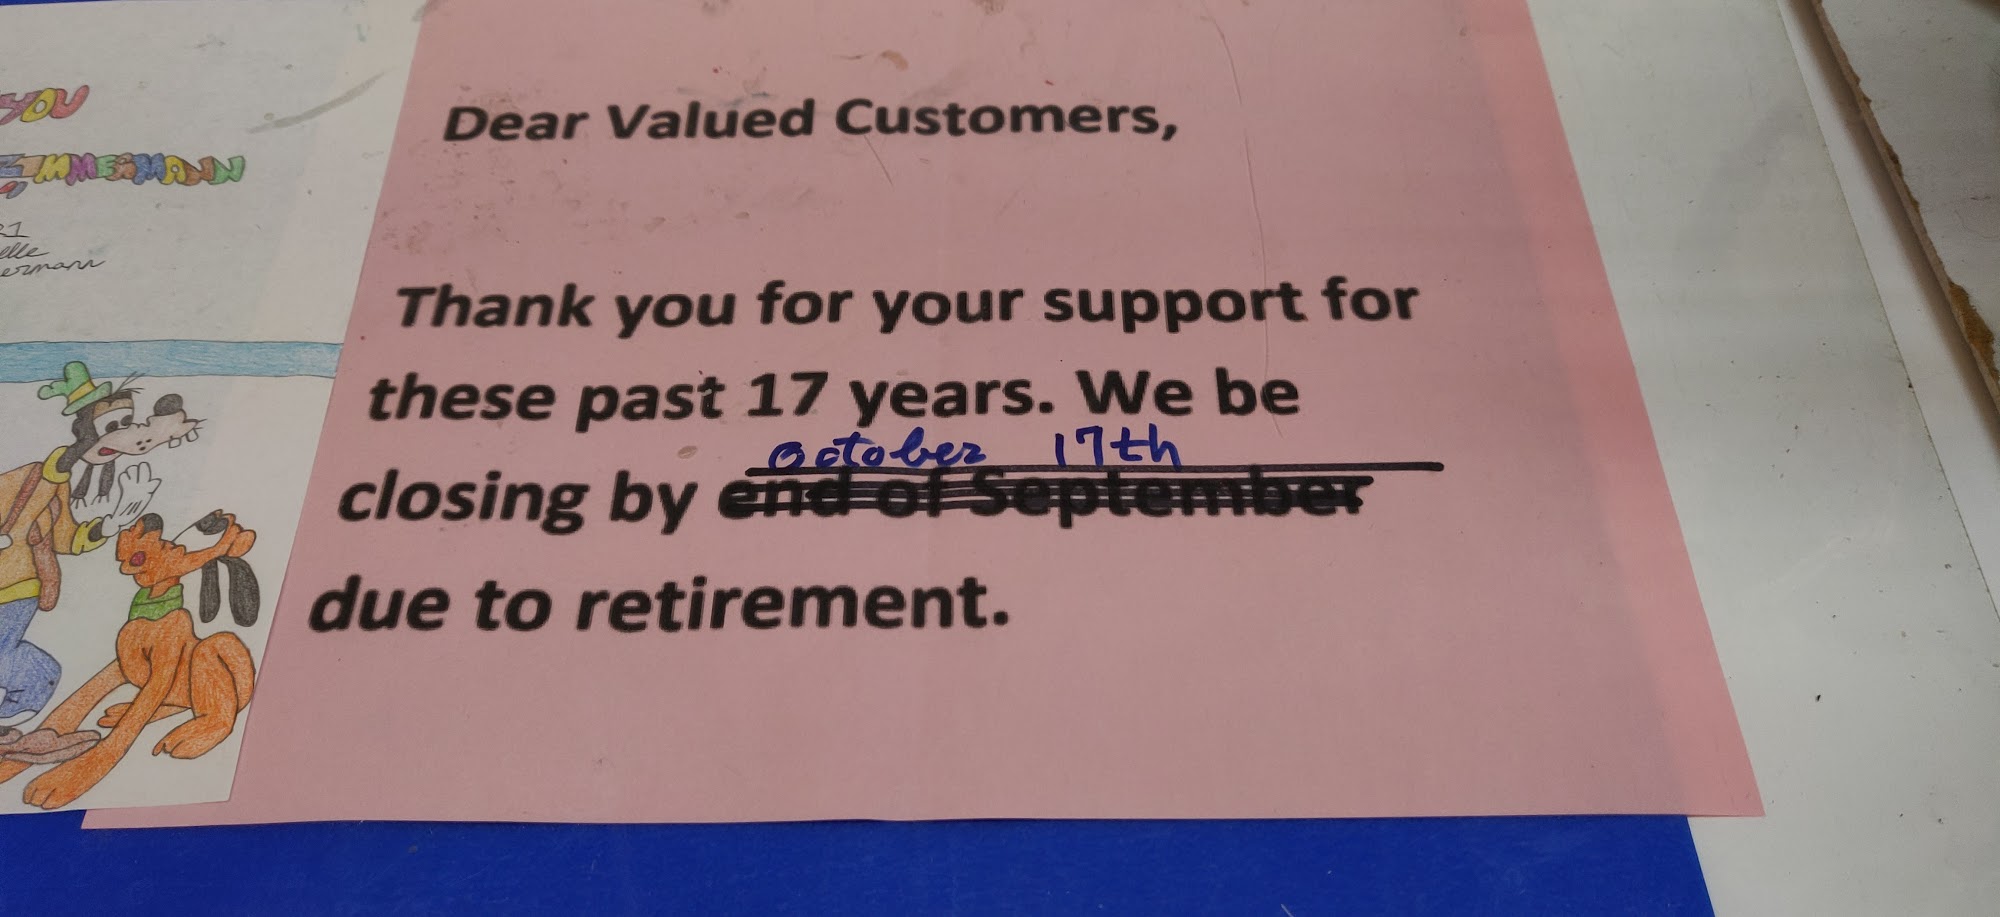 YOU
ZIMMERMANN
21
elle
ermann
Dear Valued Customers,
Thank you for your support for
these past 17 years. We be
october 17th
closing by end of September
due to retirement.